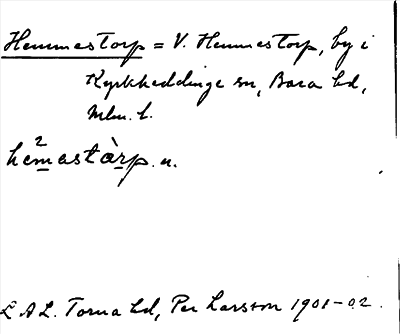 Hemmestorp = V. Hemmestorp, by i
Kyrkheddinge sn, Bara hd,
Mlm. l.
hem̲²astàr̲p. n.
L A L. Torna hd, Per Larsson 1901-02.